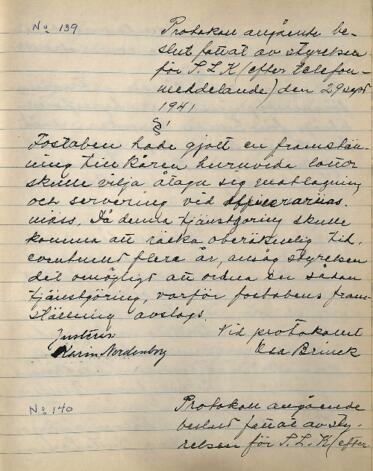 No 139
Protokoll angående be-
slut fattat av styrelsen
för S.L.K (efter telefon-
meddelande) den 29 sept
1941
§1
Fostaben hade gjort en framstäl-
ning till kåren huruvida lottor
skulle vilja åtaga seg matlagning
och servering vid officerarnas
mäss. Då denna tjänstgöring skulle
komma att räcka oberäknelig tid,
eventuellt flera år, ansåg styrelsen
det omöjligt att ordna en sådan
tjänstgöring, varför fostabens fram-
ställning avslogs.
Justeras Vid protokollet
Karin Nordenborg Esa Brinck
No 140
Protokoll angående
beslut fattat av sty-
relsen för S.L.K (efter